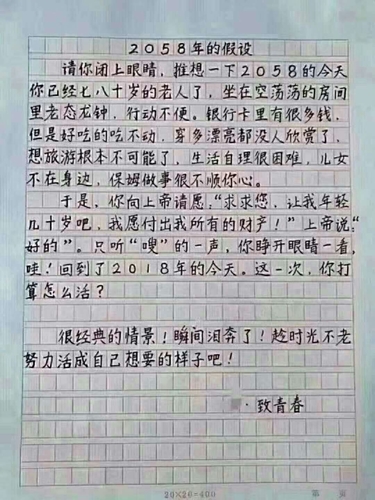 2058年的假设
请你闭上眼睛，推想一下2058的今天
你已经七八十岁的老人了，坐在空荡荡的房间
里老态龙钟，行动不便。银行卡里有很多钱，
但是好吃的吃不动，穿多漂亮都没人欣赏了，
想旅游根本不可能了，生活自理很困难，儿女
不在身边，保姆做事很不顺你心。
于是，你向上帝请愿，“求求您，让我年轻
几十岁吧，我愿付出我所有的财产！”上帝说“
好的”。只听“嗖”的一声，你睁开眼睛一看，
哇！回到了2018年的今天。这一次，你打
算怎么活？
很经典的情景！瞬间泪奔了！趁时光不老
努力活成自己想要的样子吧！
·致青春
20×20=400
第 页